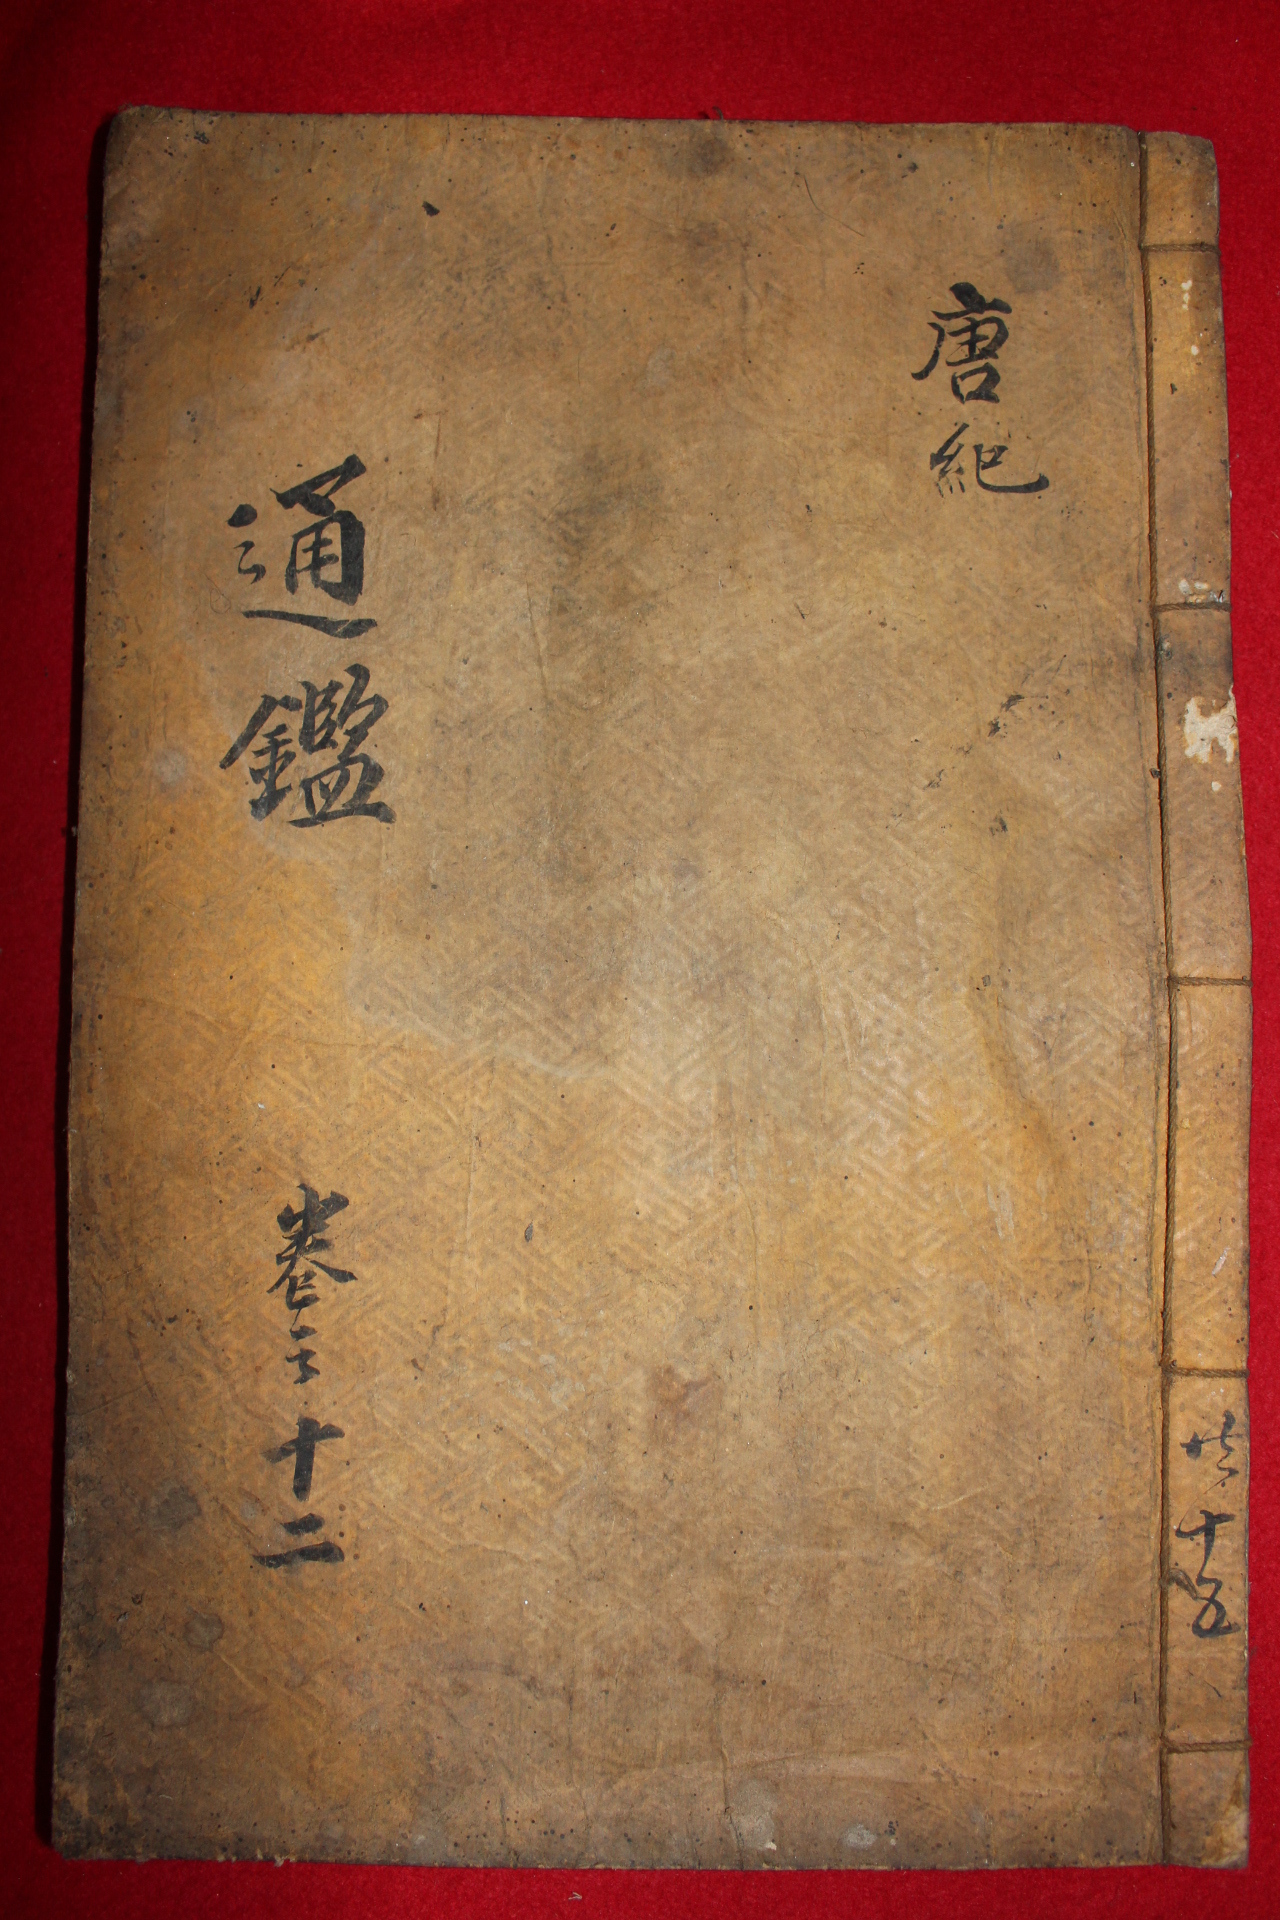 唐紀
通鑑
卷之十二
共十五